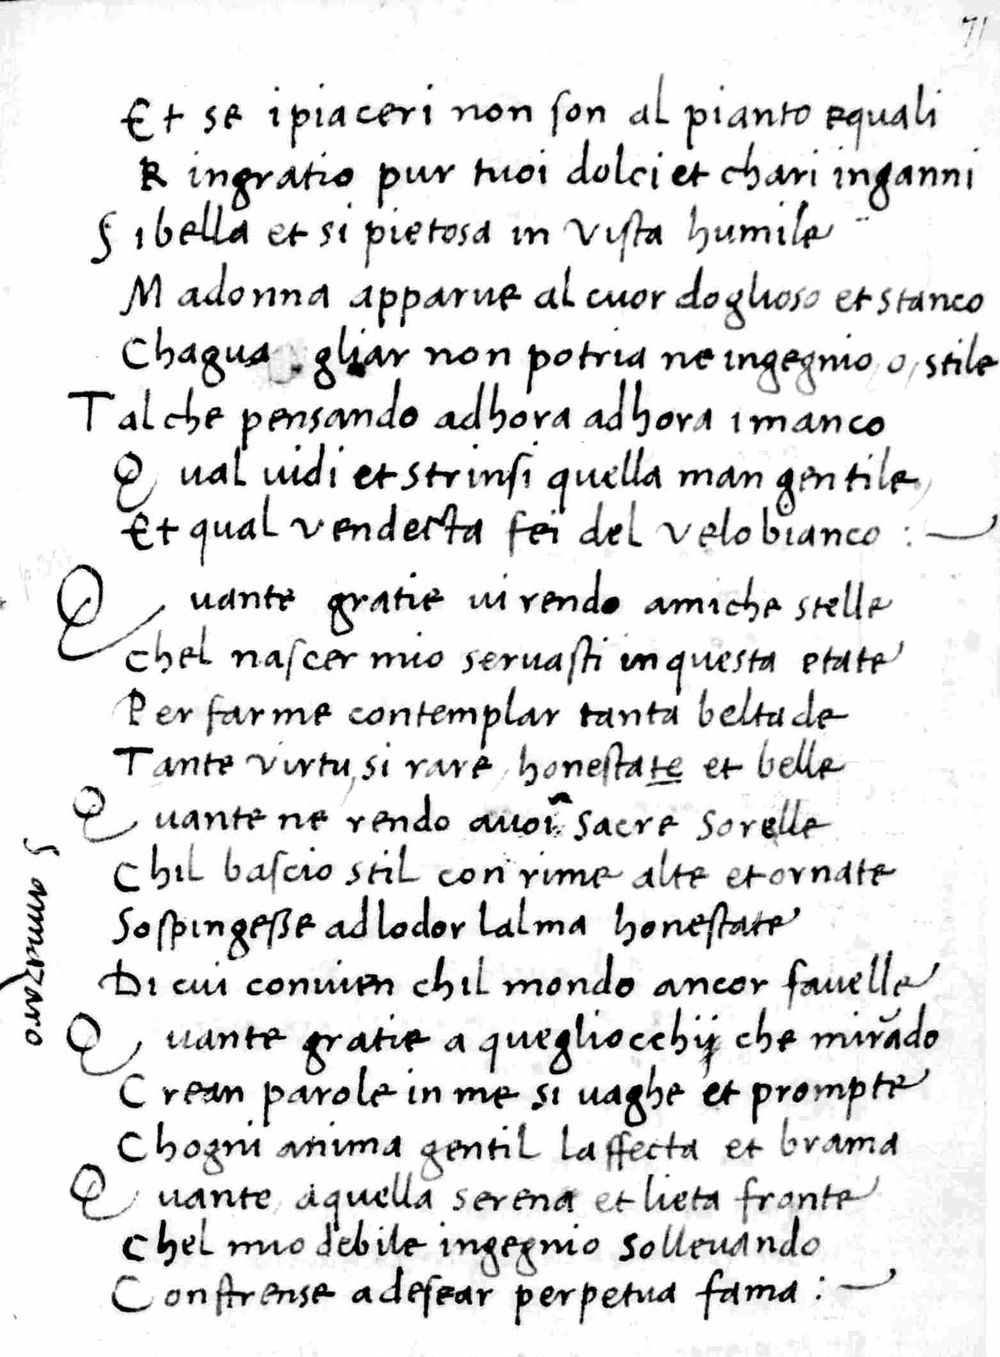 71
Et se i piaceri non son al pianto equali
Ringratio pur tuoi dolci et chari inganni
Si bella et si pietosa in vista humile
Madonna apparve al cuor doglioso et stanco
Chagua gliar non potria ne ingegnio, o, stile
Talche pensando adhora adhora i manco
Qual vidi et strinsi quella man gentile,
Et qual vendecta fei del velo bianco :
Quante gratie vi rendo amiche stelle
Chel nascer mio servasti in questa etate
Per farme contemplar tanta beltade
Tante virtu, si rare, honestate et belle
Quante ne rendo avoi Sacre Sorelle
Chil bascio stil con rime alte et ornate
Sospingeße ad lodor lalma honestate
Di cui convien chil mondo ancor favelle
Quante gratie a quegliocchij che mirādo
Crean parole in me si vaghe et prompte
Chogni anima gentil laffecta et brama
Quante, aquella serena et lieta fronte
Chel mio debile ingegnio sollevando
Constrense adesear perpetua fama :
Sannazaro